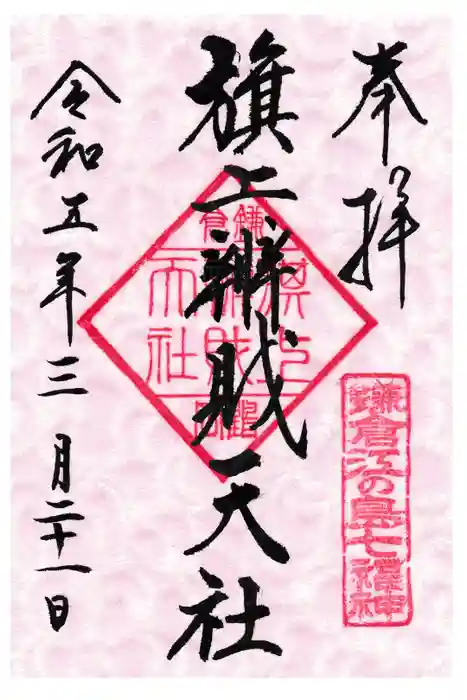 奉拝
鎌倉江の島七福神
旗上辨財天社
鎌倉
旗上
辨財
天社
令和五年三月二十一日